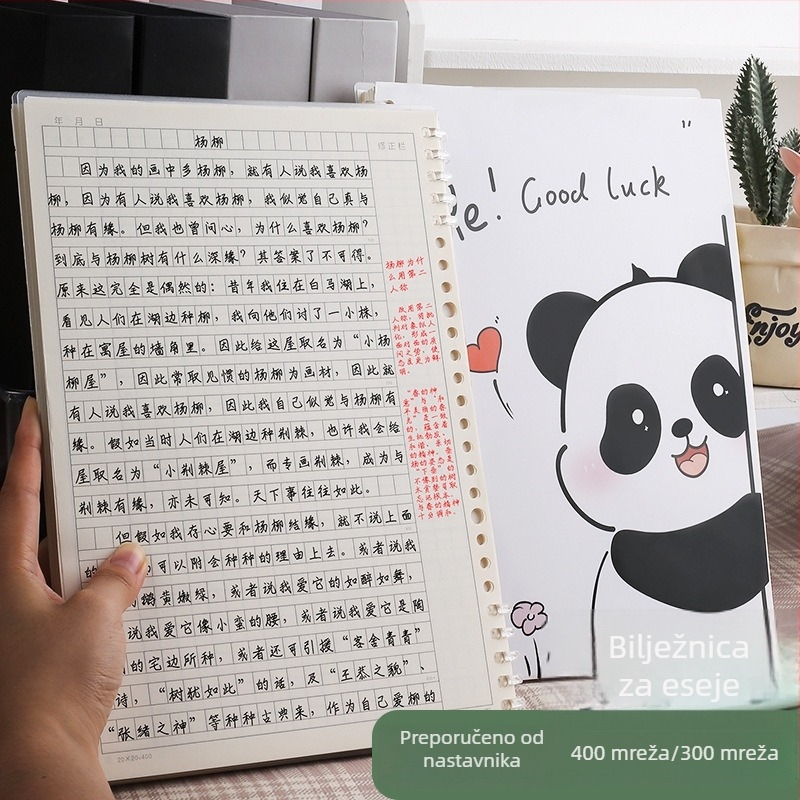 年 月 日
修正栏
杨柳
因为我的画中多杨柳，就有人说我喜欢杨
柳，因为有人说我喜欢杨柳，我似觉自己真与
杨柳有缘。但我也曾问心，为什么喜欢杨柳？
到底与杨柳树有什么深缘？其答案了不可得。
原来这完全是偶然的：昔年我住在白马湖上，
看见人们在湖边种柳，我向他们讨了一小株，
种在寓屋的墙角里。因此给这屋取名为“小杨
柳屋”，因此常取见惯的杨柳为画材，因此就
有人说我喜欢杨柳，因此我自己似觉与杨柳有
缘。假如当时人们在湖边种荆棘，也许我会给
屋取名为“小荆棘屋”，而专画荆棘，成为与
荆棘有缘，亦未可知。天下事往往如此。
但假如我存心要和杨柳结缘，就不说上面
的 可以附会种种的理由上去。或者说我
鹅黄嫩绿，或者说我爱它的如醉如舞，
说我爱它像小蛮的腰，或者说我爱它是陶
的宅边所种，或者还可引援“客舍青青”
诗，“树犹如此”的话，及“王恭之貌”、
“张绪之神”等种种古典来，作为自己爱柳的
20×20=400
杨柳为什
么用第二
人称
改用第二
人称，将批
判对象拟人
化，形成一
面对面的质
问之势，使
态度更为鲜
明。
"
He! Good luck
Enjoy
Bilježnica
za eseje
Preporučeno od
nastavnika
400 mreža/300 mreža